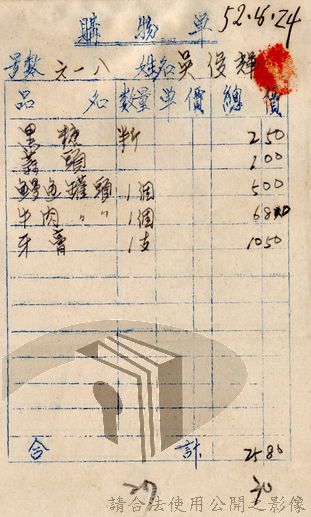 購物單 52.6.24
號數 六一八 姓名 吳俊輝
品名 數量 單價 總價
黑糖 半斤 250
蒜頭 200
鰻魚罐頭 1個 500
牛肉 〃〃 1個 680
牙膏 1支 1050
合計 2580
請合法使用公開之影像